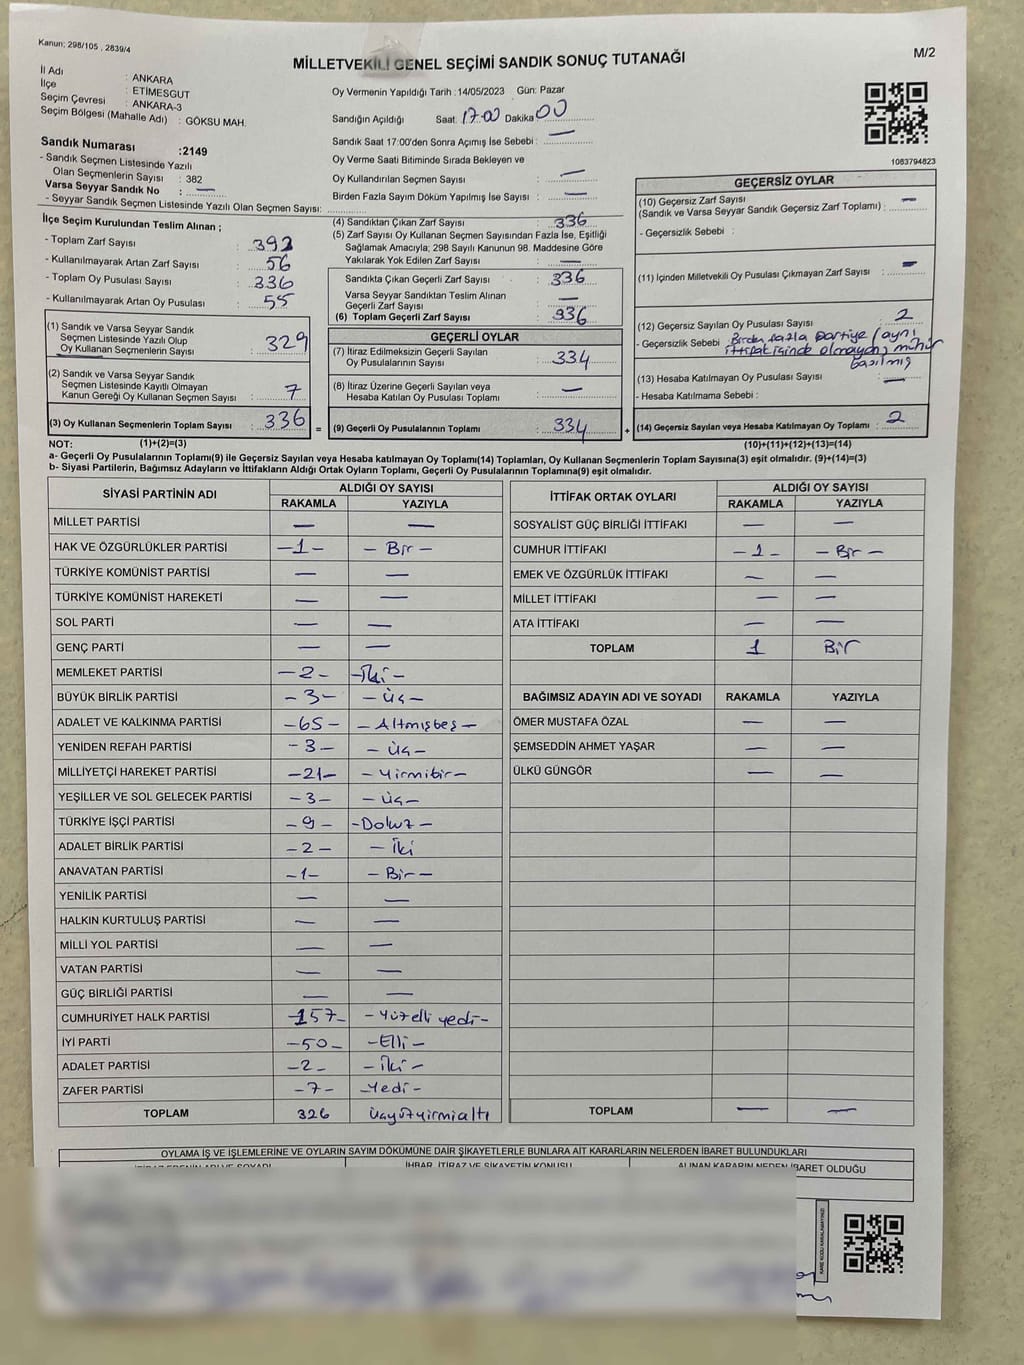 Kanun; 298/105 , 2839/4
M/2
MİLLETVEKİLİ GENEL SEÇİMİ SANDIK SONUÇ TUTANAĞI
İl Adı : ANKARA
İlçe : ETİMESGUT
Seçim Çevresi : ANKARA-3
Seçim Bölgesi (Mahalle Adı) : GÖKSU MAH.
Sandık Numarası :2149
- Sandık Seçmen Listesinde Yazılı
Olan Seçmenlerin Sayısı : 382
Varsa Seyyar Sandık No : —
- Seyyar Sandık Seçmen Listesinde Yazılı Olan Seçmen Sayısı:
Oy Vermenin Yapıldığı Tarih :14/05/2023 Gün: Pazar
Sandığın Açıldığı Saat: 17:00 Dakika: 00
Sandık Saat 17:00'den Sonra Açımış İse Sebebi : —
Oy Verme Saati Bitiminde Sırada Bekleyen ve
Oy Kullandırılan Seçmen Sayısı : —
Birden Fazla Sayım Döküm Yapılmış İse Sayısı : —
1083794823
İlçe Seçim Kurulundan Teslim Alınan ;
- Toplam Zarf Sayısı : 392
- Kullanılmayarak Artan Zarf Sayısı : 56
- Toplam Oy Pusulası Sayısı : 336
- Kullanılmayarak Artan Oy Pusulası : 55
(1) Sandık ve Varsa Seyyar Sandık
Seçmen Listesinde Yazılı Olup
Oy Kullanan Seçmenlerin Sayısı : 329
(2) Sandık ve Varsa Seyyar Sandık
Seçmen Listesinde Kayıtlı Olmayan
Kanun Gereği Oy Kullanan Seçmen Sayısı : 7
(3) Oy Kullanan Seçmenlerin Toplam Sayısı : 336 =
(4) Sandıktan Çıkan Zarf Sayısı : 336
(5) Zarf Sayısı Oy Kullanan Seçmen Sayısından Fazla İse, Eşitliği
Sağlamak Amacıyla; 298 Sayılı Kanunun 98. Maddesine Göre
Yakılarak Yok Edilen Zarf Sayısı : —
Sandıkta Çıkan Geçerli Zarf Sayısı : 336
Varsa Seyyar Sandıktan Teslim Alınan
Geçerli Zarf Sayısı : —
(6) Toplam Geçerli Zarf Sayısı : 336
GEÇERLİ OYLAR
(7) İtiraz Edilmeksizin Geçerli Sayılan
Oy Pusulalarının Sayısı : 334
(8) İtiraz Üzerine Geçerli Sayılan veya
Hesaba Katılan Oy Pusulası Toplamı : —
(9) Geçerli Oy Pusulalarının Toplamı : 334 +
GEÇERSİZ OYLAR
(10) Geçersiz Zarf Sayısı
(Sandık ve Varsa Seyyar Sandık Geçersiz Zarf Toplamı) : —
- Geçersizlik Sebebi :
(11) İçinden Milletvekili Oy Pusulası Çıkmayan Zarf Sayısı : —
(12) Geçersiz Sayılan Oy Pusulası Sayısı : 2
- Geçersizlik Sebebi Birden fazla partiye (aynı
ittifak içinde olmayan) mühür
basılmış
(13) Hesaba Katılmayan Oy Pusulası Sayısı : —
- Hesaba Katılmama Sebebi :
(14) Geçersiz Sayılan veya Hesaba Katılmayan Oy Toplamı : 2
NOT: (1)+(2)=(3) (10)+(11)+(12)+(13)=(14)
a- Geçerli Oy Pusulalarının Toplamı(9) ile Geçersiz Sayılan veya Hesaba katılmayan Oy Toplam(14) Toplamları, Oy Kullanan Seçmenlerin Toplam Sayısına(3) eşit olmalıdır. (9)+(14)=(3)
b- Siyasi Partilerin, Bağımsız Adayların ve İttifakların Aldığı Ortak Oyların Toplamı, Geçerli Oy Pusulalarının Toplamına(9) eşit olmalıdır.
SİYASİ PARTİNİN ADI ALDIĞI OY SAYISI
RAKAMLA YAZIYLA
MİLLET PARTİSİ — —
HAK VE ÖZGÜRLÜKLER PARTİSİ -1- - Bir -
TÜRKİYE KOMÜNİST PARTİSİ — —
TÜRKİYE KOMÜNİST HAREKETİ — —
SOL PARTİ — —
GENÇ PARTİ — —
MEMLEKET PARTİSİ -2- -İki-
BÜYÜK BİRLİK PARTİSİ -3- - Üç -
ADALET VE KALKINMA PARTİSİ -65- - Altmışbeş -
YENİDEN REFAH PARTİSİ -3- - Üç -
MİLLİYETÇİ HAREKET PARTİSİ -21- - Yirmibir -
YEŞİLLER VE SOL GELECEK PARTİSİ -3- - Üç -
TÜRKİYE İŞÇİ PARTİSİ -9- -Dokuz-
ADALET BİRLİK PARTİSİ -2- - İki
ANAVATAN PARTİSİ -1- - Bir -
YENİLİK PARTİSİ — —
HALKIN KURTULUŞ PARTİSİ — —
MİLLİ YOL PARTİSİ — —
VATAN PARTİSİ — —
GÜÇ BİRLİĞİ PARTİSİ — —
CUMHURİYET HALK PARTİSİ -157- - Yüzelli yedi -
İYİ PARTİ -50- -Elli-
ADALET PARTİSİ -2- - İki -
ZAFER PARTİSİ -7- -Yedi-
TOPLAM 326 Üçyüzyirmialtı
İTTİFAK ORTAK OYLARI ALDIĞI OY SAYISI
RAKAMLA YAZIYLA
SOSYALİST GÜÇ BİRLİĞİ İTTİFAKI — —
CUMHUR İTTİFAKI -1- - Bir -
EMEK VE ÖZGÜRLÜK İTTİFAKI — —
MİLLET İTTİFAKI — —
ATA İTTİFAKI — —
TOPLAM 1 Bir
BAĞIMSIZ ADAYIN ADI VE SOYADI RAKAMLA YAZIYLA
ÖMER MUSTAFA ÖZAL — —
ŞEMSEDDİN AHMET YAŞAR — —
ÜLKÜ GÜNGÖR — —
TOPLAM — —
OYLAMA İŞ VE İŞLEMLERİNE VE OYLARIN SAYIM DÖKÜMÜNE DAİR ŞİKAYETLERLE BUNLARA AİT KARARLARIN NELERDEN İBARET BULUNDUKLARI
İHBAR, İTİRAZ VE ŞİKAYETİN KONUSU ALINAN KARARIN NEDEN İBARET OLDUĞU